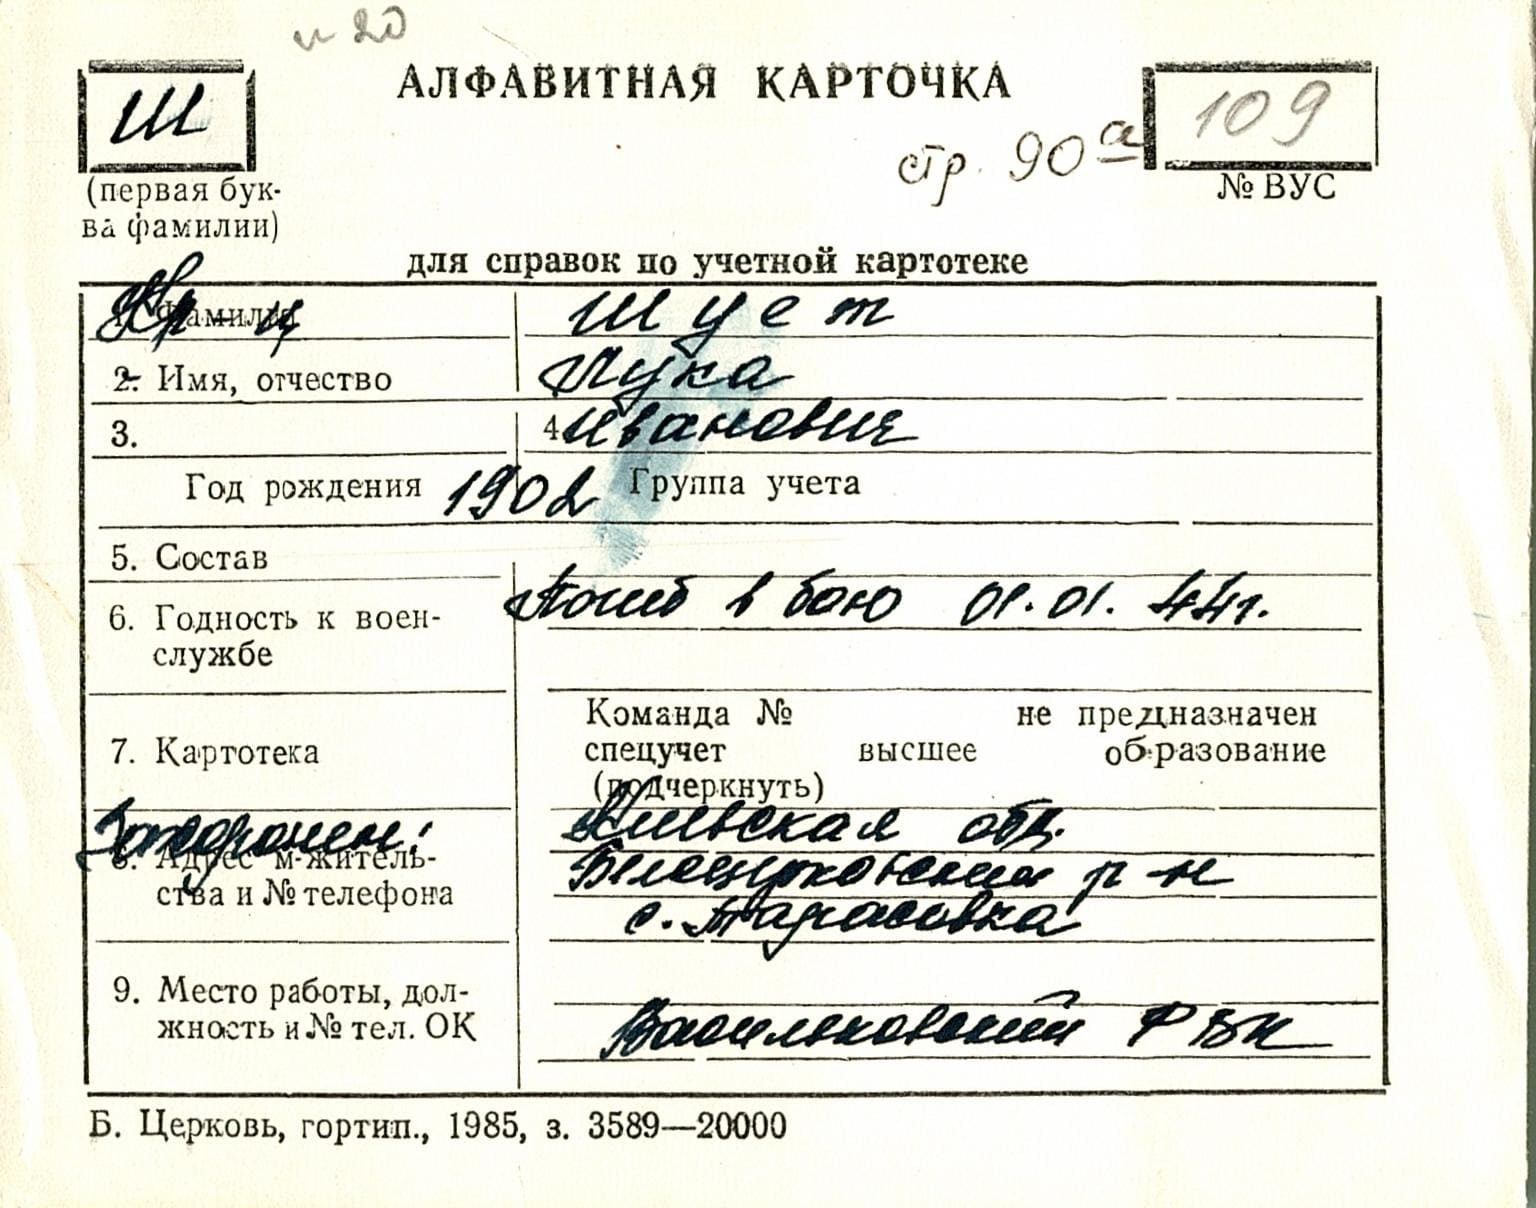 и 20
Ш
АЛФАВИТНАЯ КАРТОЧКА
109
стр. 90а
(первая бук-
ва фамилии)
№ ВУС
для справок по учетной картотеке
1. Фамилия Кр-ц Шует
2. Имя, отчество Лука
3. 4. Иванович
Год рождения 1902 Группа учета
5. Состав
6. Годность к воен-
службе
Погиб в бою 01.01.44г.
7. Картотека
Команда № не предназначен
спецучет высшее образование
(подчеркнуть)
Захоронен:
8. Адрес м-житель-
ства и № телефона
Киевская обл.
Белоцерковский р-н
с. Тарасовка
9. Место работы, дол-
жность и № тел. ОК
Васильковский РВК
Б. Церковь, гортип., 1985, з. 3589—20000